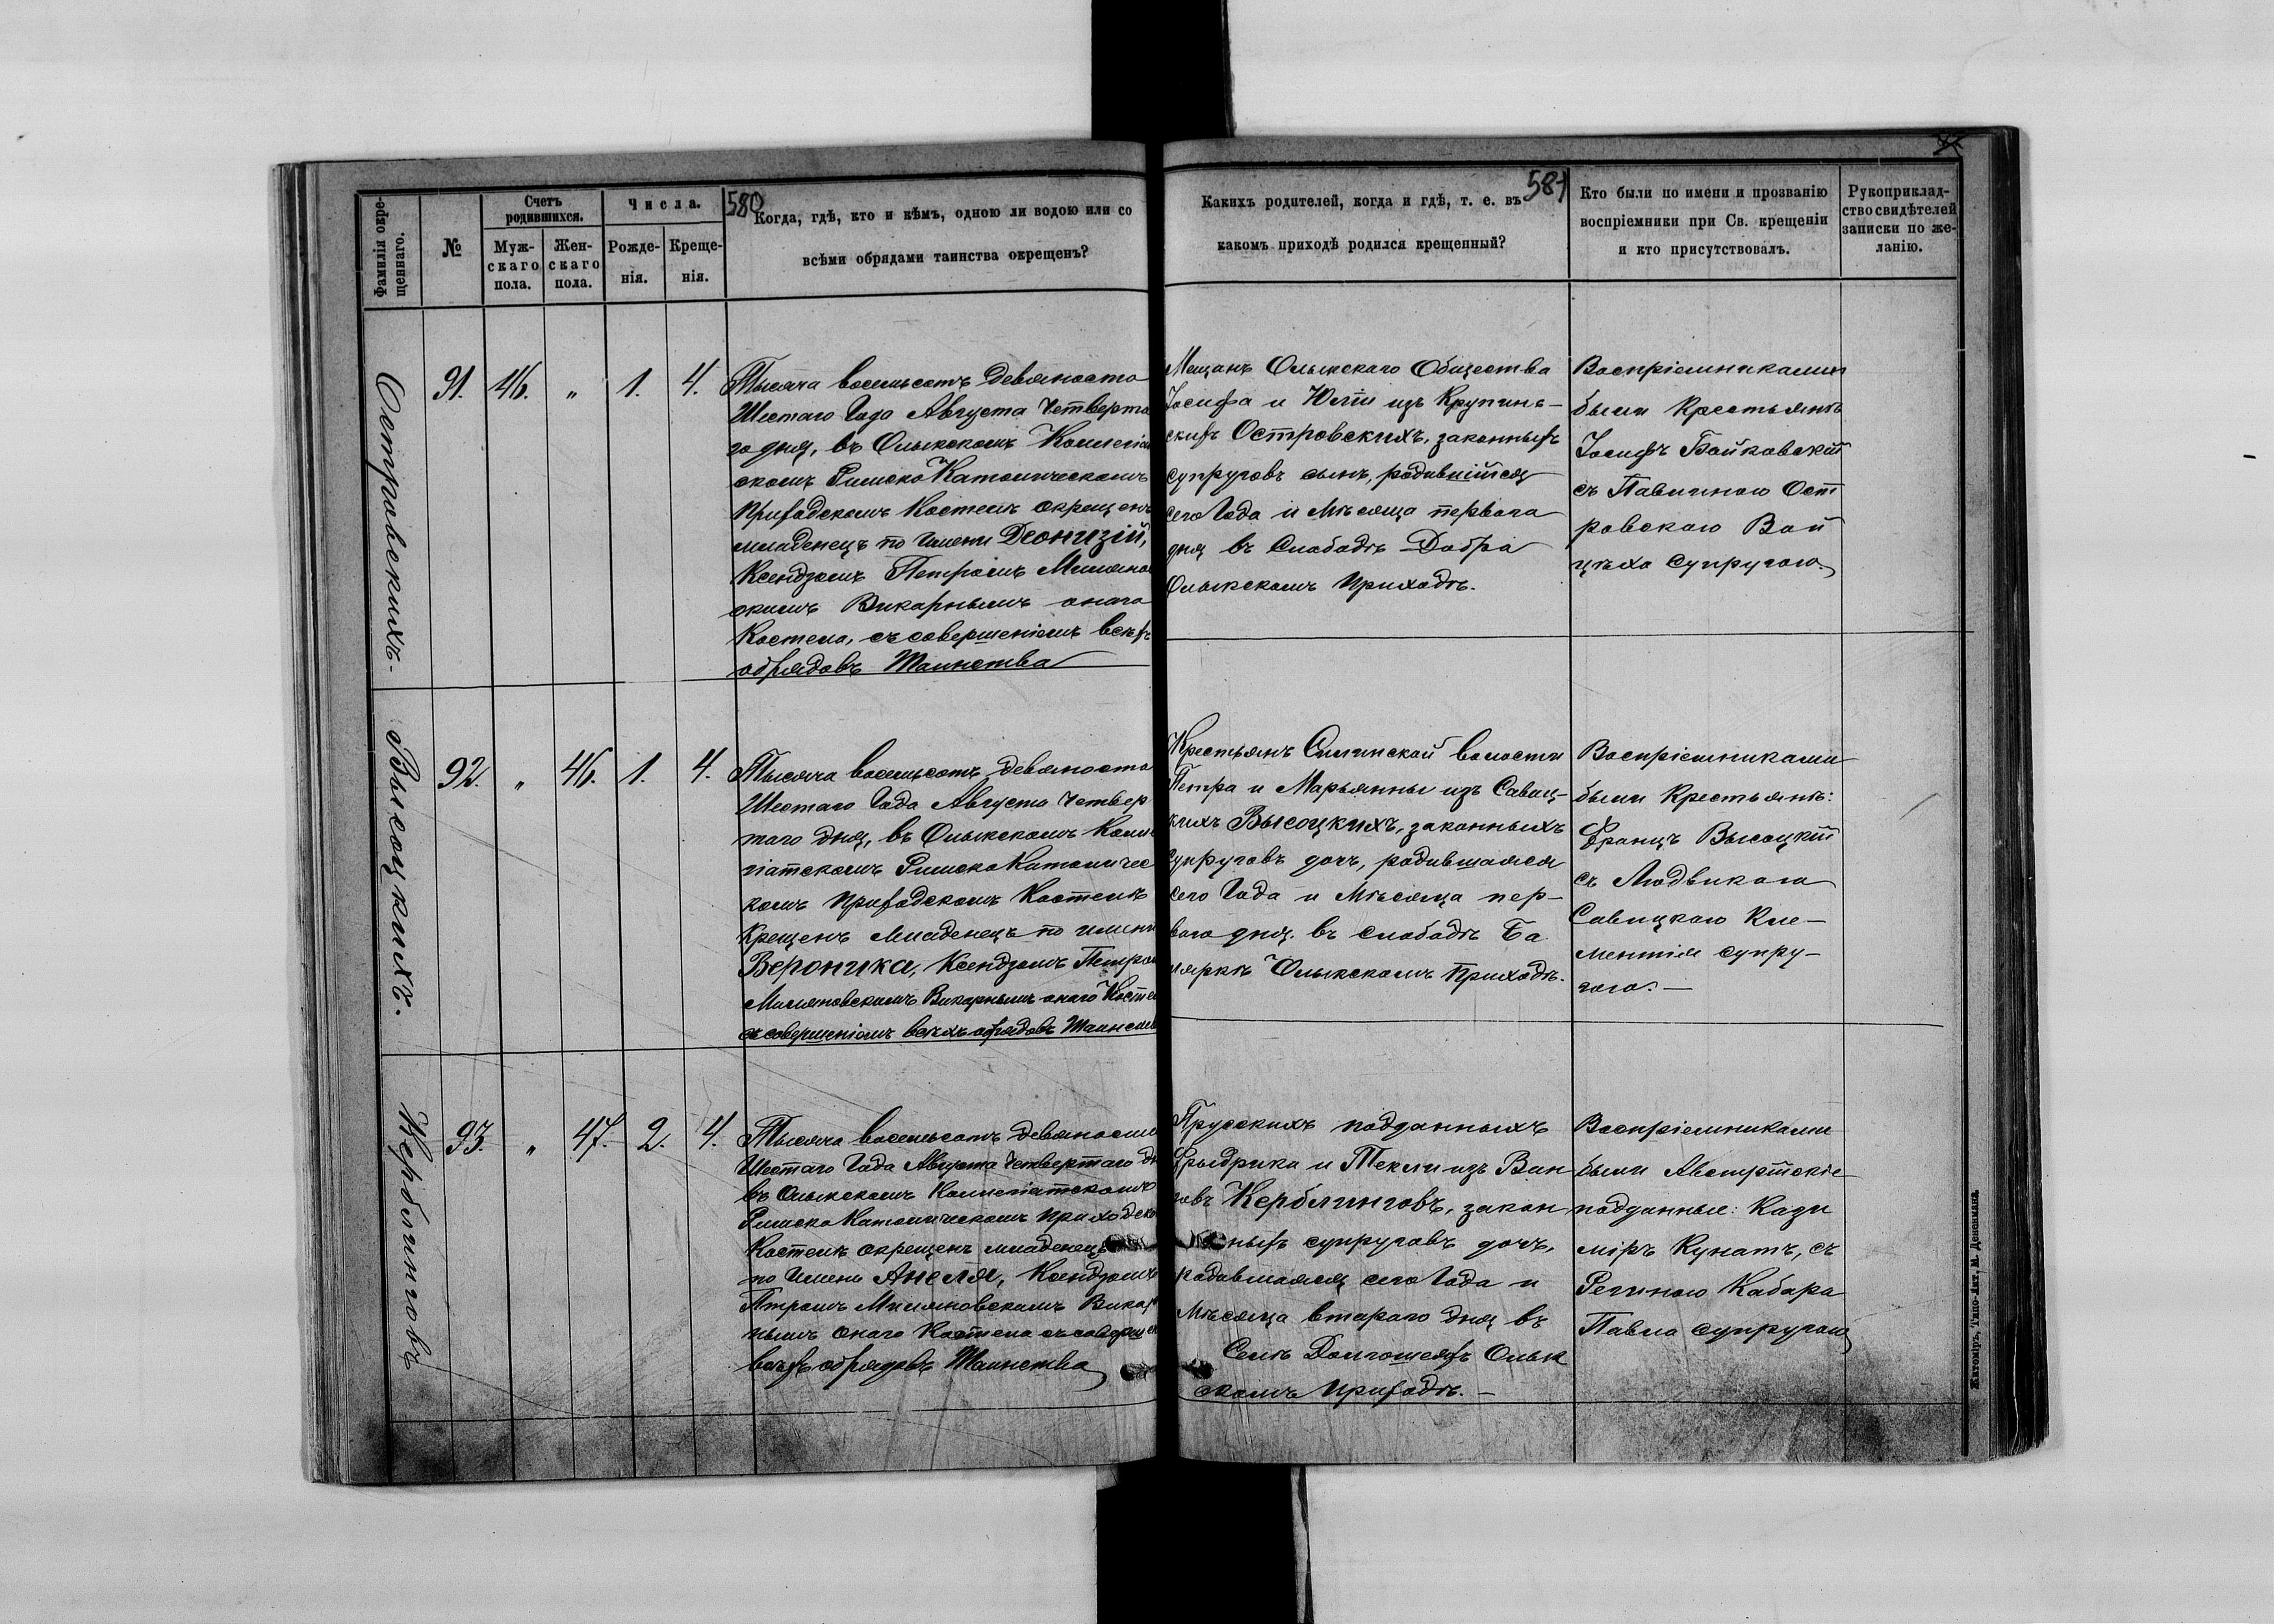 580
581
Фамилія окре-
щеннаго.
№
Счетъ
родившихся.
Муж-
скаго
пола.
Жен-
скаго
пола.
Числа.
Рожде-
нія.
Креще-
нія.
Когда, гдѣ, кто и кѣмъ, одною ли водою или со
всѣми обрядами таинства окрещенъ?
Какихъ родителей, когда и гдѣ, т. е. въ
какомъ приходѣ родился крещенный?
Кто были по имени и прозванію
воспріемники при Св. крещеніи
и кто присутствовалъ.
Рукоприклад-
ство свидѣтелей
записки по же-
ланію.
Островскихъ.
91. 46. " 1. 4.
Тысяча восемьсотъ девяносто
Шестаго Года Августа Четверта
го дня, въ Олыкскомъ Коллегіат
скомъ Римско Католическомъ
Приходскомъ Костелѣ окрещенъ
младенецъ по имени Деонизій,
Ксендзомъ Петромъ Миляно
скимъ Викарнымъ онаго
Костела, съ совершеніемъ всѣхъ
обрядовъ Таинства
Мещанъ Олыкскаго Общества
Іосифа и Юліи изъ Крупин-
скихъ Островскихъ, законныхъ
супруговъ сынъ, родившійся
сего Года и Мѣсяца перваго
дня въ Слободѣ Добра
Олыкскомъ Приходѣ.
Воспріемниками
были Крестьянѣ
Іосифъ Байковскій
съ Павлиною Ост
ровскаго Вой
цѣха супругою.
Высоцкихъ.
92. " 46. 1. 4.
Тысяча восемьсотъ девяносто
Шестаго Года Августа Четвер
таго дня, въ Олыкскомъ Колле
гіатскомъ Римско Католичес
комъ Приходскомъ Костелѣ
Крещенъ Младенецъ по имени
Вероника, Ксендзомъ Петром
Миляновскимъ Викарнымъ онаго Косте
съ совершеніемъ всѣхъ обрядовъ Таинства
Крестьянъ Силинской волости
Петра и Марьянны изъ Савиц-
кихъ Высоцкихъ, законныхъ
супруговъ дочь, родившаяся
сего Года и Мѣсяца пер-
ваго дня въ слободѣ Ба
ляркѣ Олыкскомъ Приходѣ.
Воспріемниками
были Крестьянѣ:
Францъ Высоцкій
съ Людвикою
Савицкаго Кле-
ментія супру-
гою. -
Керблинговъ
93. " 47. 2. 4.
Тысяча восемьсотъ девяносто
Шестаго Года Августа Четвертаго дн
въ Олыкскомъ Коллегіатскомъ
Римско Католическомъ Приходско
Костелѣ окрещенъ младенецъ
по имени Анеля, Ксендзомъ
Птромъ Миляновскимъ Викар
нымъ онаго Костела съ соверше
всѣхъ обрядовъ Таинства
Прусскихъ подданныхъ
Фрыдрика и Текли изъ Ван
говъ Керблинговъ, закон
ныхъ супруговъ дочь,
родившаяся сего Года и
Мѣсяца втораго дня въ
Селѣ Долгошеяхъ Олык
скомъ Приходѣ. -
Воспріемниками
были Австрійскіе
подданные: Кази
міръ Кунатъ, съ
Региною Кабара
Павла супругою
Житоміръ, Типо-Лит. М. Дененмана.